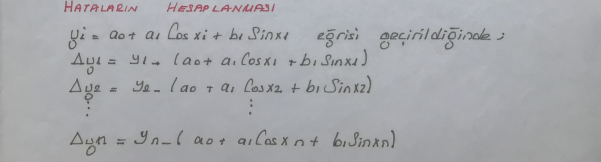 HATALARIN HESAPLANMASI
yi = a0 + a1 Cos xi + b1 Sinx1 eğrisi geçirildiğinde;
Δy1 = y1 - (a0 + a1 Cosx1 + b1 Sinx1)
Δy2 = y2 - (a0 + a1 Cosx2 + b1 Sinx2)
⋮ ⋮
Δyn = yn - (a0 + a1 Cosxn + b1 Sinxn)